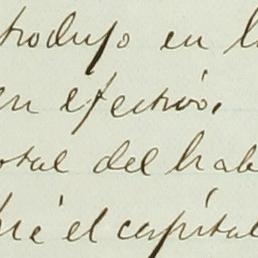 trodujo en l
en efectivo.
otal del hab
el capital